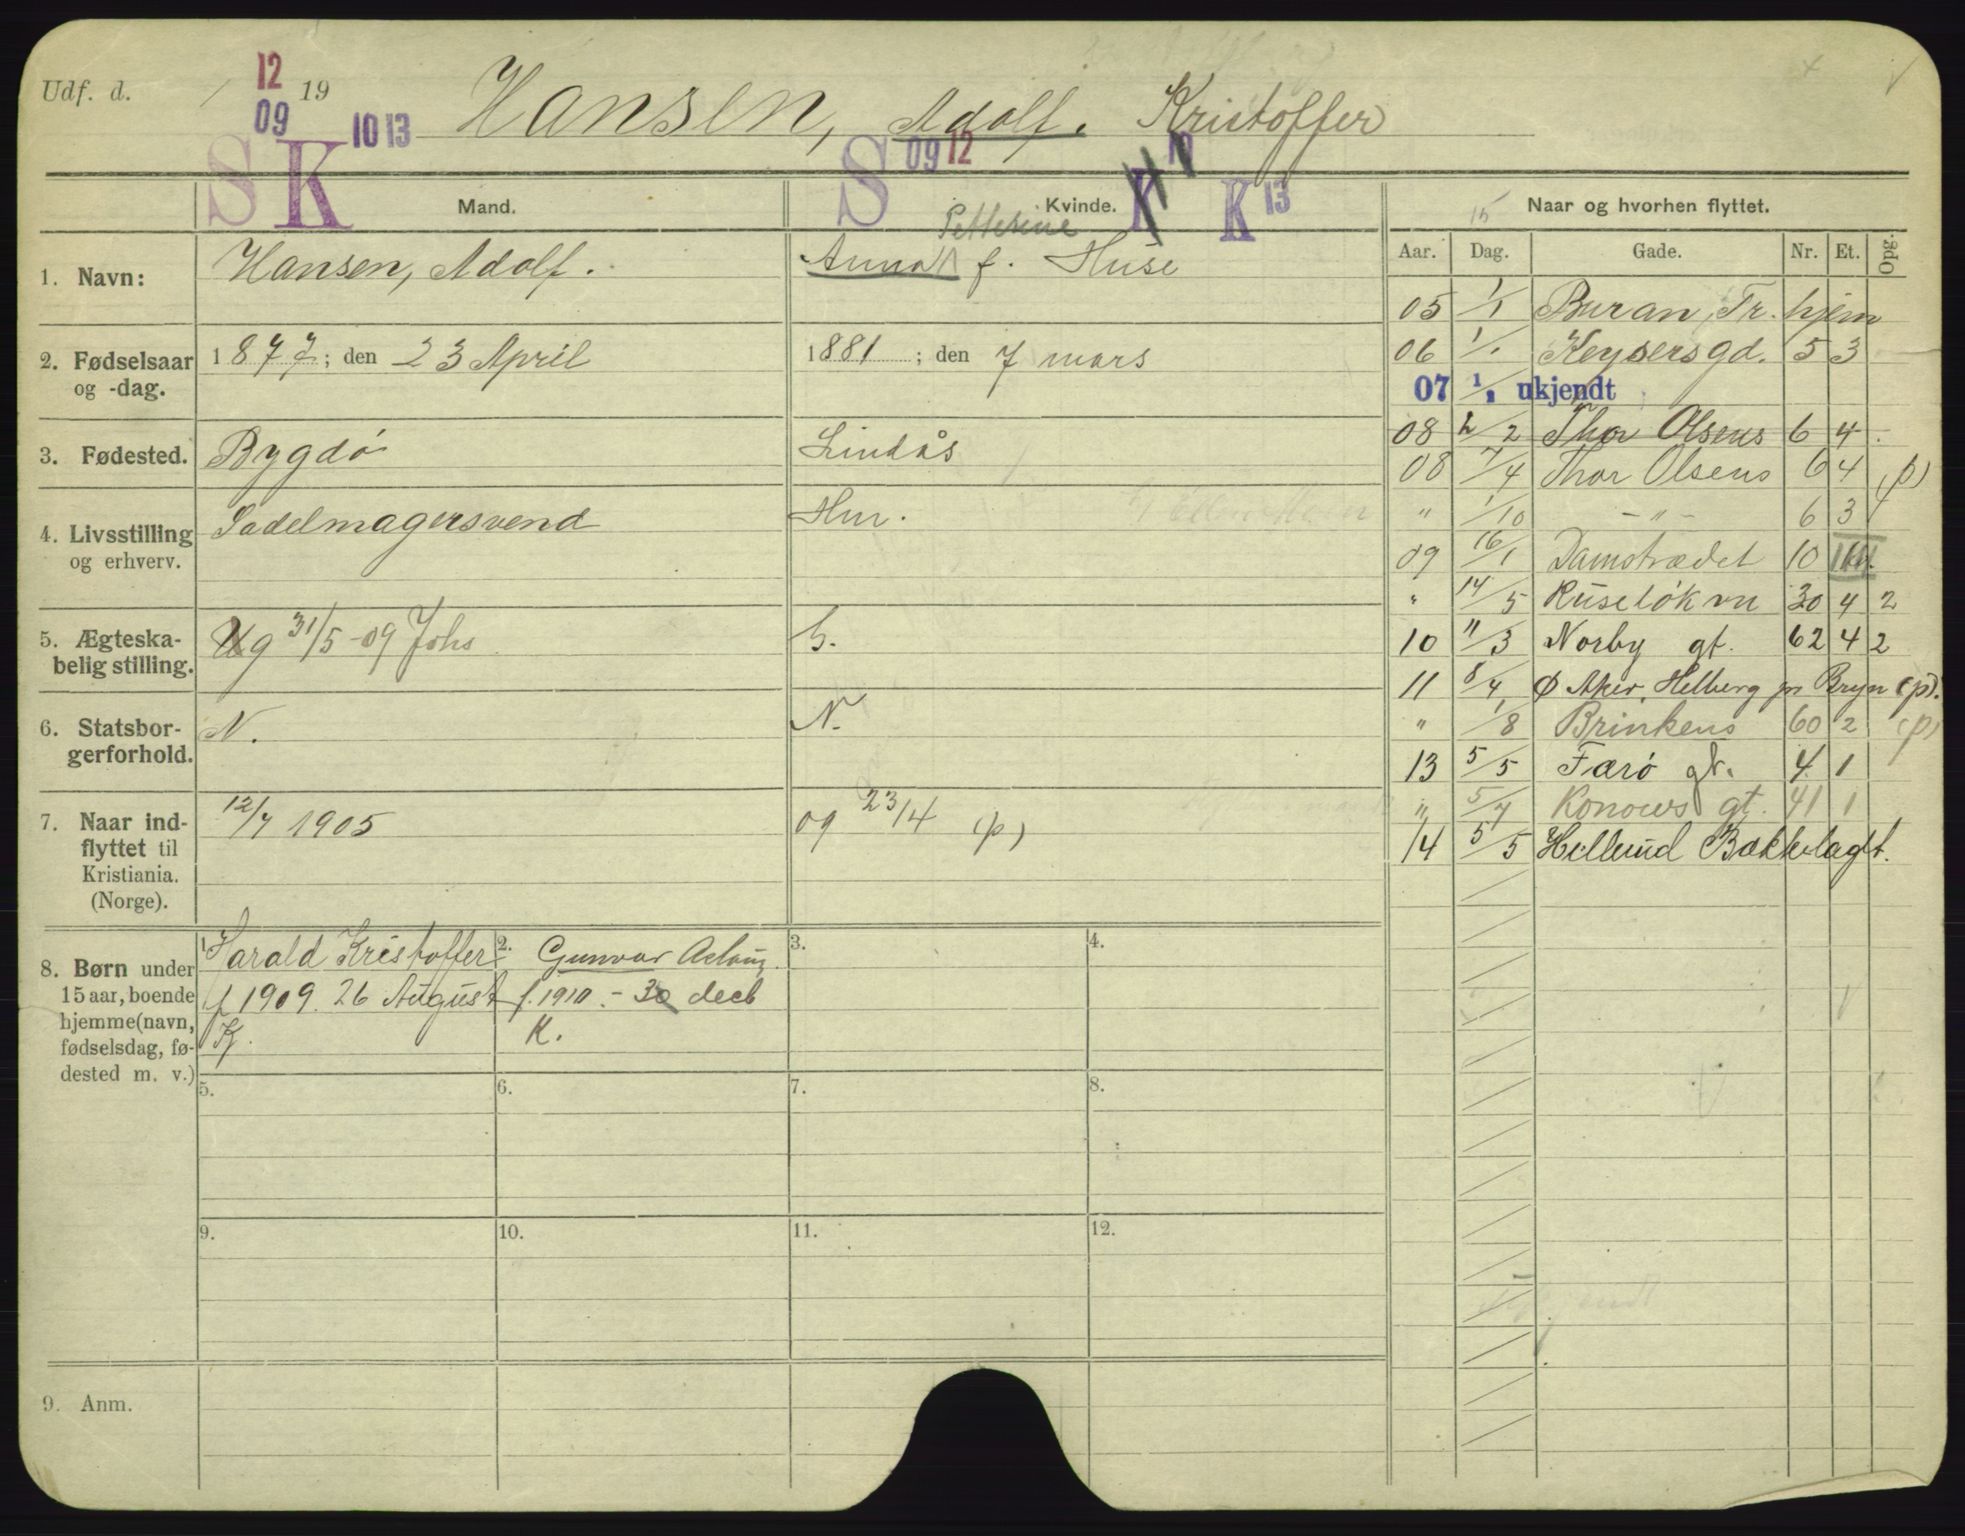 Udf. d. 12 19
09 10 13 Hansen, Adolf. Kristoffer
S K S 09 12 K K 13
Mand. Kvinde. Naar og hvorhen flyttet.
15
Pettesine
1. Navn: Hansen, Adolf. Anna f. Huse
2. Fødselsaar og -dag. 1877; den 23 April 1881; den 7 mars
3. Fødested. Bygdö Lindås
4. Livsstilling og erhverv. Sadelmagersvend Hur.
5. Ægteska-
belig stilling. Ug 31/5-09 Johs G.
6. Statsbor-
gerforhold. N. N.
7. Naar ind-
flyttet til
Kristiania.
(Norge). 12/7 1905 09 23/4 (p)
8. Børn under
15 aar, boende
hjemme (navn,
fødselsdag, fø-
dested m. v.)
1. Harald Kristoffer
f 1909. 26 August
K.
2. Gunvor Aslaug
f. 1910. - 30 decb
K.
3.
4.
5.
6.
7.
8.
9.
10.
11.
12.
9. Anm.
Aar. Dag. Gade. Nr. Et. Opg.
05 1/1 Buran, Tr. hjem
06 1/1 Keysers gd. 5 3
07 1/1 ukjendt
08 2/2 Thor Olsens 6 4
08 7/4 Thor Olsens 6 4 (p)
" 1/10 - " - 6 3
09 16/1 Damstrædet 10
" 14/5 Ruseløkvn 30 4 2
10 11/3 Norby gt. 62 4 2
11 8/4 Ø Aker, Helberg pr Bryn (p).
" 1/8 Brinkens 60 2 (p)
13 5/5 Færö gt. 4 1
" 5/7 Konows gt. 41 1
14 5/5 Hellund Bækkelaget.